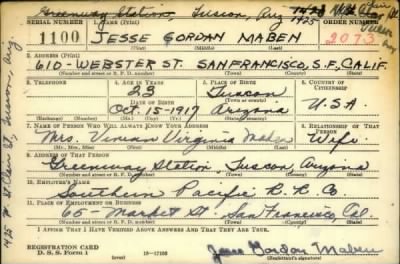 Greenway Station, Tuscon, Ariz
1425
SERIAL NUMBER
1. NAME (Print)
ORDER NUMBER
1100
JESSE GORDAN MABEN
2073
(First) (Middle) (Last)
2. ADDRESS (Print)
610-WEBSTER ST. SANFRANCISCO, S.F. CALIF.
(Number and street or R. F. D. number) (Town) (County) (State)
3. TELEPHONE
4. AGE IN YEARS
5. PLACE OF BIRTH
6. COUNTRY OF CITIZENSHIP
23
Tuscon
DATE OF BIRTH
(Town or county)
U.S.A.
Oct. 1-1917
Arizona
(Exchange) (Number)
(Mo.) (Day) (Yr.)
(State or country)
7. NAME OF PERSON WHO WILL ALWAYS KNOW YOUR ADDRESS
8. RELATIONSHIP OF THAT PERSON
Mrs. Vivian Virginia Maben
Wife
(Mr., Mrs., Miss) (First) (Middle) (Last)
9. ADDRESS OF THAT PERSON
Greenway Station, Tuscon, Arizona
(Number and street or R. F. D. number) (Town) (County) (State)
10. EMPLOYER'S NAME
Southern Pacific R.R. Co
11. PLACE OF EMPLOYMENT OR BUSINESS
65- Market St. San Francisco, Cal.
(Number and street or R. F. D. number) (Town) (County) (State)
I AFFIRM THAT I HAVE VERIFIED ABOVE ANSWERS AND THAT THEY ARE TRUE.
REGISTRATION CARD
D. S. S. Form 1
16-17105
Jesse Gordon Maben
(Registrant's signature)